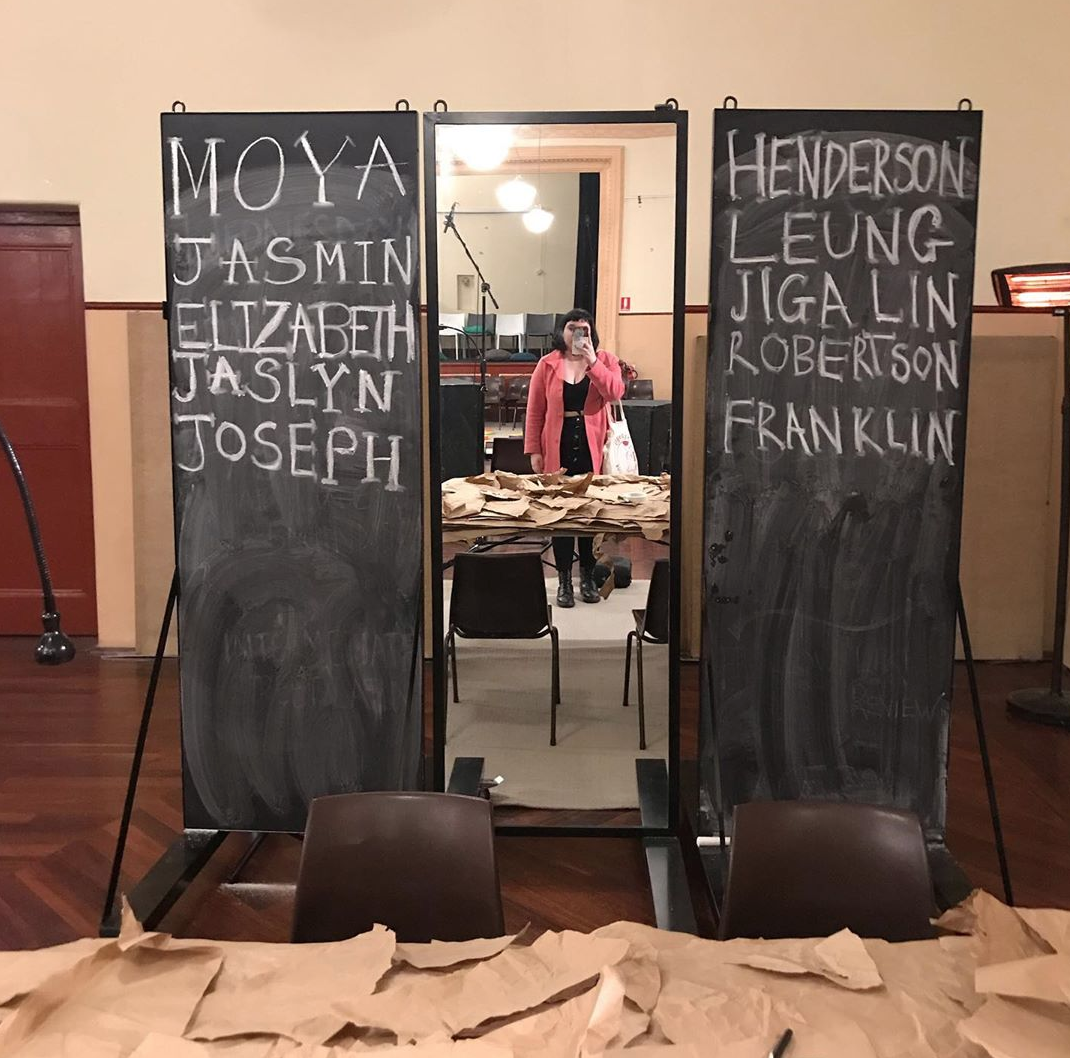 MOYA
JASMIN
ELIZABETH
JASLYN
JOSEPH
HENDERSON
LEUNG
JIGA LIN
ROBERTSON
FRANKLIN
REVIEW